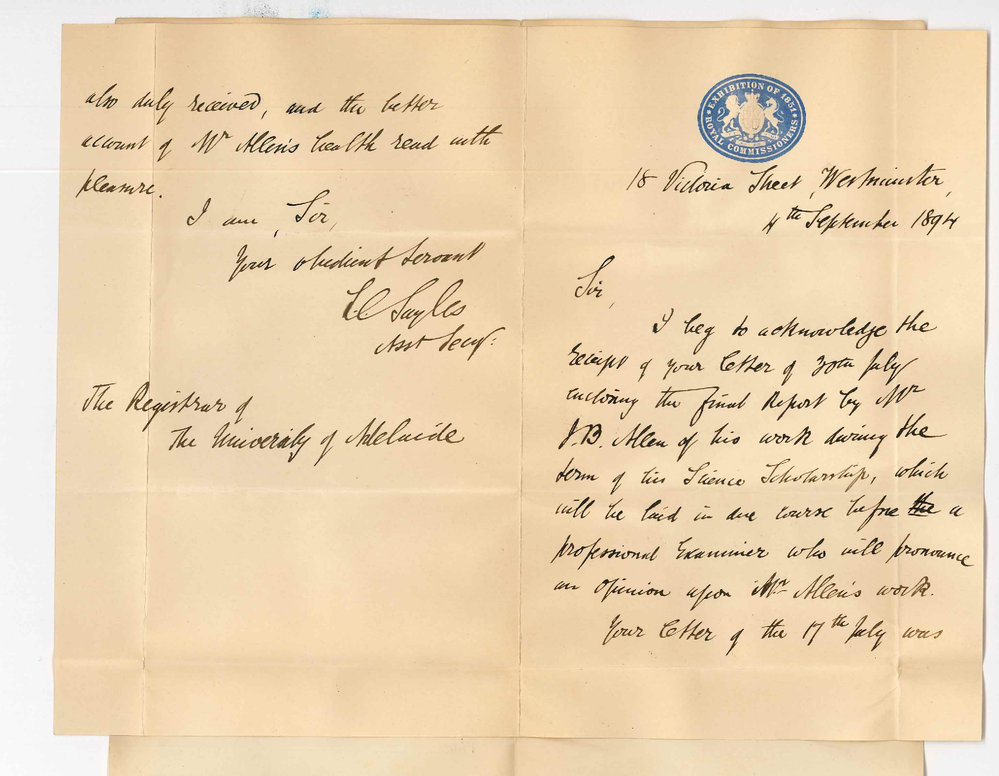 EXHIBITION OF 1851
ROYAL COMMISSIONERS
18 Victoria Street, Westminster,
4th September 1894
Sir,
I beg to acknowledge the
receipt of your letter of 30th July
enclosing the final Report by Mr
J.B. Allen of his work during the
term of his Science Scholarship, which
will be laid in due course before the a
professional Examiner who will pronounce
an opinion upon Mr Allen's work.
Your letter of the 17th July was
also duly received, and the better
account of Mr Allen's health read with
pleasure.
I am, Sir,
Your obedient Servant
Sayles
Asst Secy.
The Registrar of
The University of Adelaide